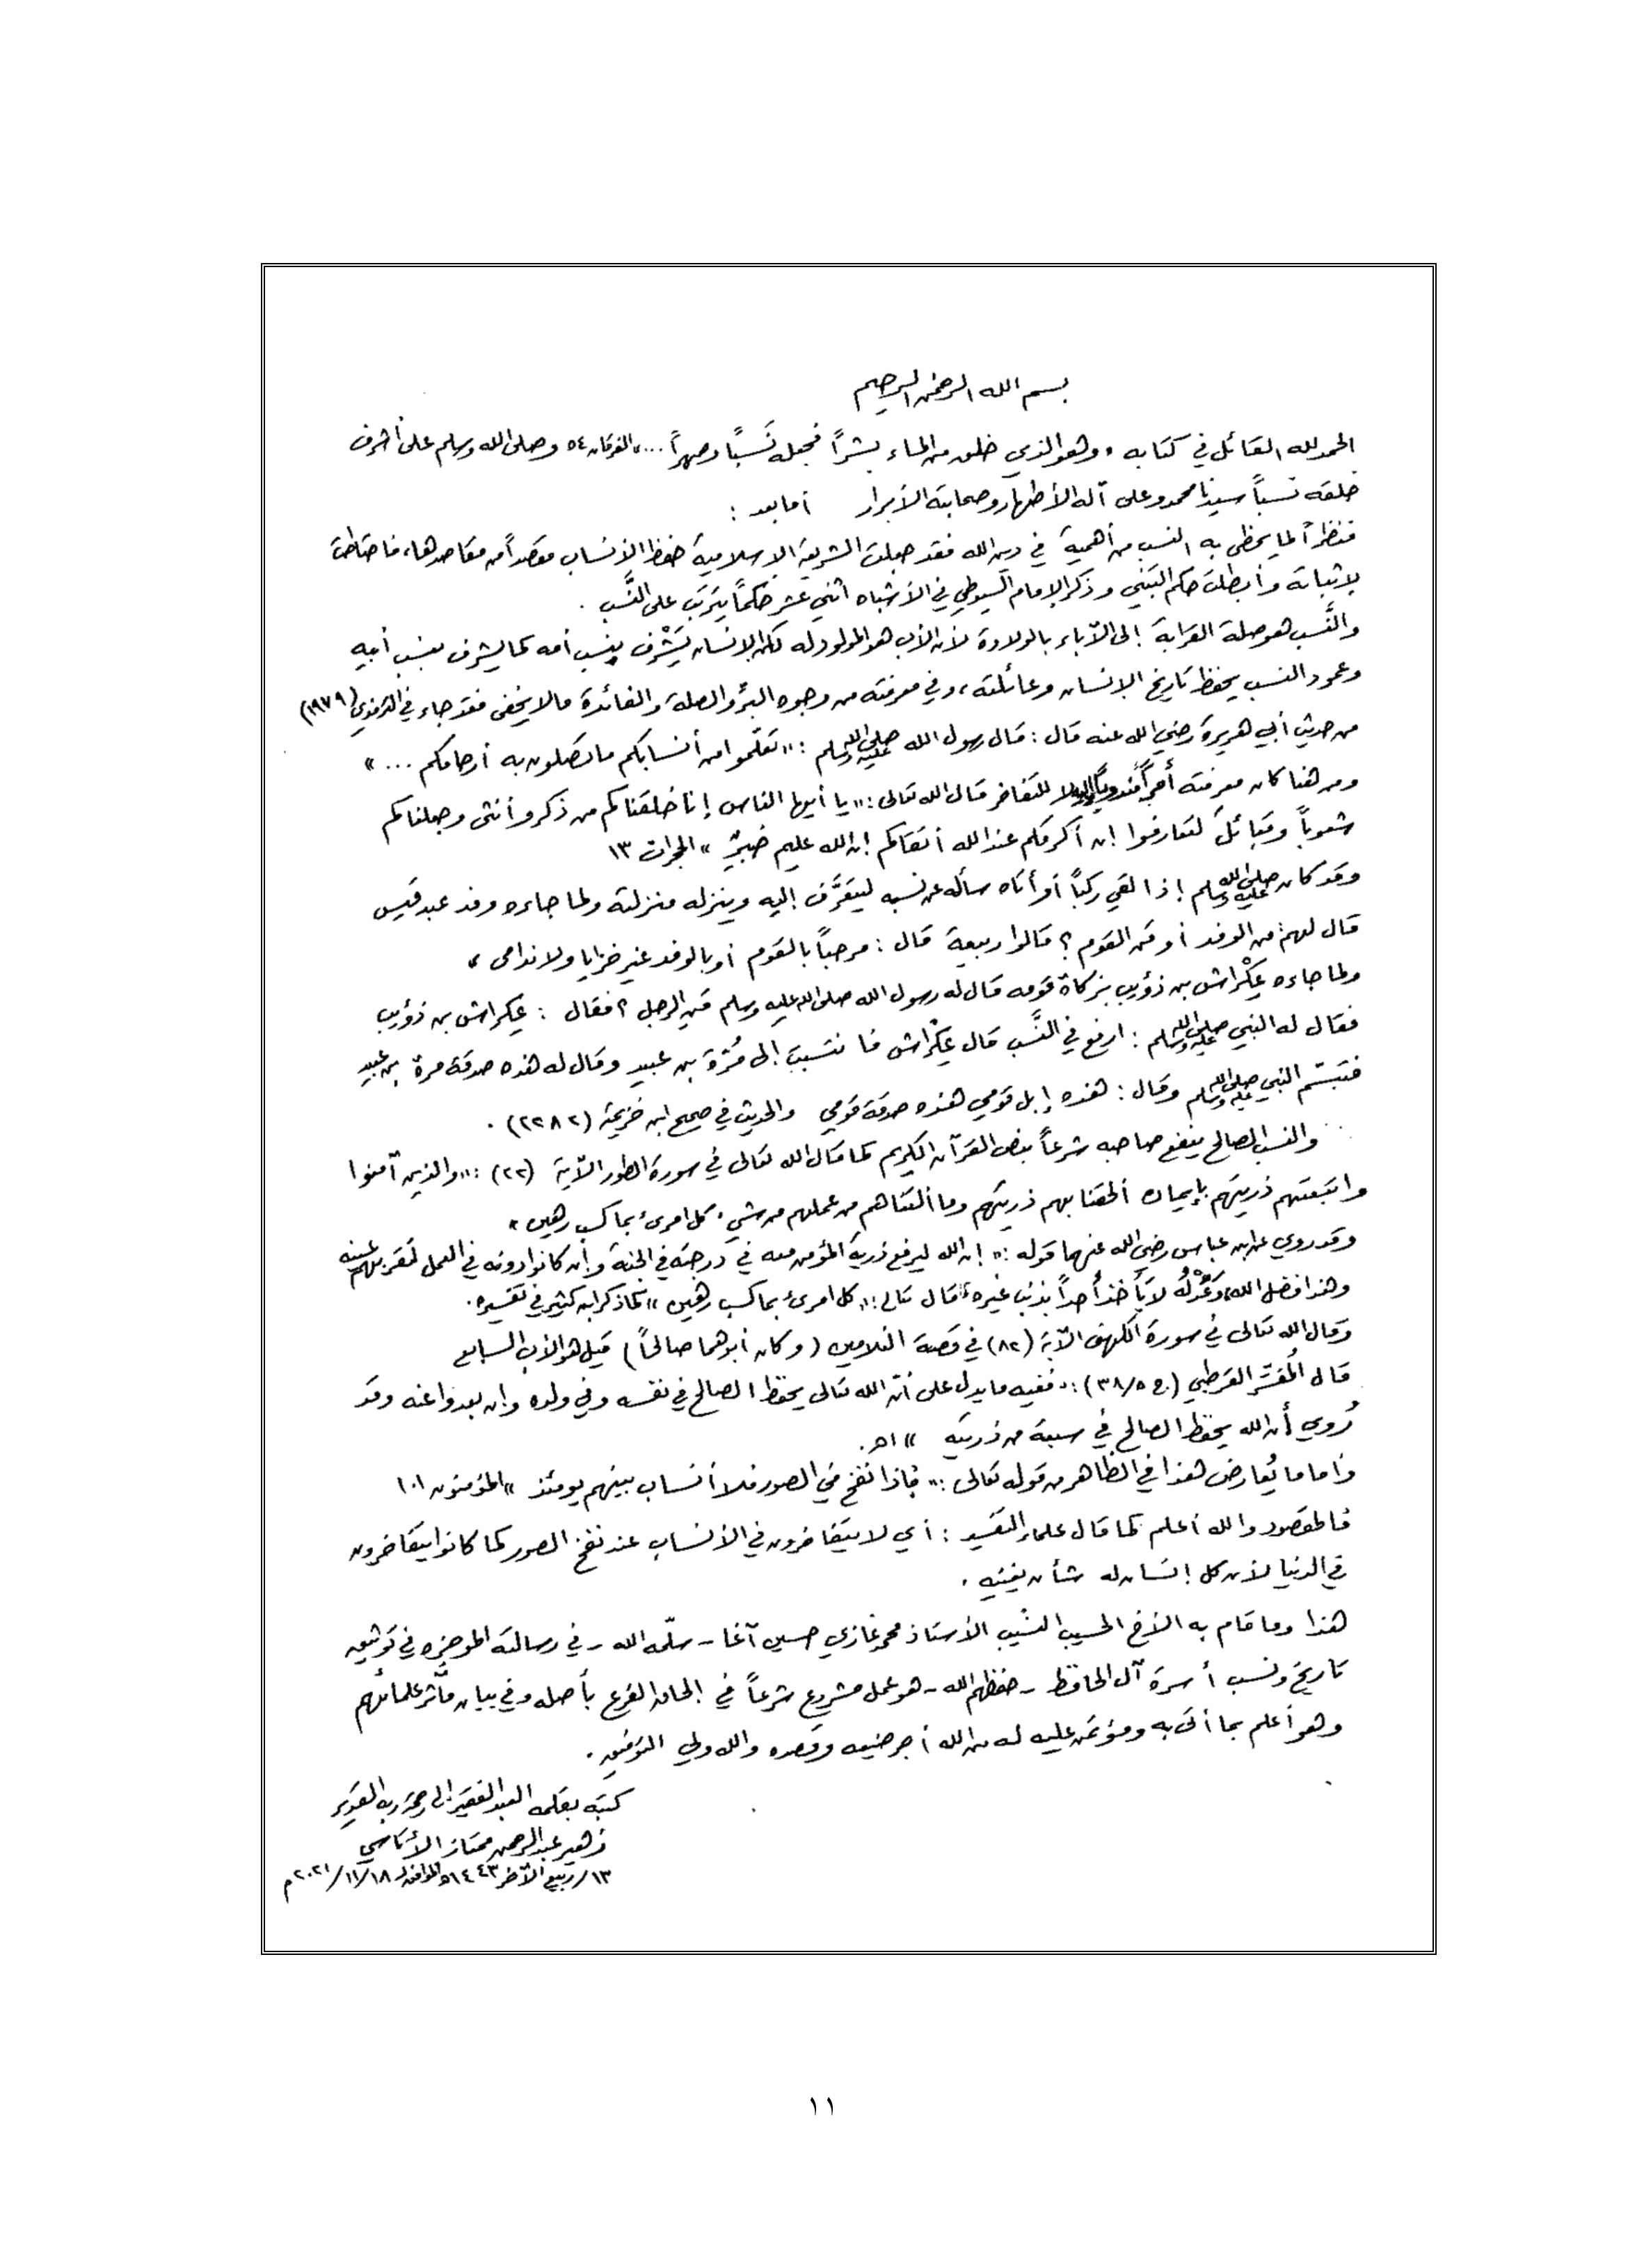 بسم الله الرحمن الرحيم
الحمد لله القائل في كتابه « وهو الذي خلق من الماء بشراً فجعله نَسَباً وصهراً ... » الفرقان ٥٤ وصلى الله وسلم على أشرف
خلقه نسباً سيدنا محمد وعلى آله الأطهار وصحابته الأبرار أما بعد :
فنظراً لما يحظى به النسب من أهمية في دين الله فقد جعلت الشريعة الإسلامية حفظ الأنساب مقصداً من مقاصدها، فاحتاطت
لإثباته وأبطلت حكم التبني وذكر الإمام السيوطي في الأشباه اثني عشر حكماً يترتب على النَّسَب .
والنَّسب هو صلة القرابة إلى الآباء بالولادة لأن الأب هو المولود له لكن الإنسان يَشْرُف بنسب أمه كما يشرف بنسب أبيه
وعمود النسب يحفظ تاريخ الإنسان وعائلته، وفي معرفته من وجوه البرّ والصلة والفائدة ما لا يخفى فقد جاء في الترمذي (١٩٧٩)
من حديث أبي هريرة رضي الله عنه قال : قال رسول الله صلى الله عليه وسلم : « تعلّموا من أنسابكم ما تصلون به أرحامكم ... »
ومن هنا كان معرفته أمراً مندوباً لا للتفاخر قال الله تعالى : « يا أيها الناس إنا خلقناكم من ذكر وأنثى وجعلناكم
شعوباً وقبائلَ لتعارفوا إن أكرمكم عند الله أتقاكم إن الله عليم خبيرٌ » الحجرات ١٣
وقد كان صلى الله عليه وسلم إذا لقي ركباً أو أتاه سأله عن نسبه ليتعرَّف إليه وينزله منزلته ولما جاءه وفد عبد قيس
قال لهم من الوفد أو من القوم ؟ قالوا ربيعة قال : مرحباً بالقوم أو بالوفد غير خزايا ولا ندامى »
ولما جاءه عِكْراش بن ذؤيب بزكاة قومه قال له رسول الله صلى الله عليه وسلم مَن الرجل ؟ فقال : عِكراش بن ذؤيب
فقال له النبي صلى الله عليه وسلم : ارفع في النَّسب قال عِكْراش فانتسبتُ إلى مُرّة بن عبيد وقال له هذه صدقة مرة بن عبيد
فتبسّم النبي صلى الله عليه وسلم وقال : هذه إبل قومي هذه صدقة قومي والحديث في صحيح ابن خزيمة (٢٢٨٢) .
والنسب الصالح ينفع صاحبه شرعاً بنص القرآن الكريم كما قال الله تعالى في سورة الطور الآية (٢٢) : « والذين آمنوا
واتبعتهم ذريتهم بإيمان ألحقنا بهم ذريتهم وما ألتناهم من عملهم من شيء كل امرئ بما كسب رهين »
وقد روي عن ابن عباس رضي الله عنهما قوله : « إن الله ليرفع ذرية المؤمن معه في درجته في الجنة وإن كانوا دونه في العمل لتقر بهم عينه
وهذا فضل الله، وعَدْلُه لا يأخذ أحداً بذنب غيره قال تعالى : « كل امرئ بما كسب رهين » كما ذكر ابن كثير في تفسيره .
وقال الله تعالى في سورة الكهف الآية (٨٢) في قصة الغلامين ( وكان أبوهما صالحاً ) قيل هو الأب السابع
قال المفسّر القرطبي (ج ٣٨/٥) : « ففيه ما يدل على أنّ الله تعالى يحفظ الصالح في نفسه وفي ولده وإن بعدوا عنه وقد
رُوي أن الله يحفظ الصالح في سبعة من ذريته » اهـ .
وأما ما يُعارض هذا في الظاهر من قوله تعالى : « فإذا نفخ في الصور فلا أنساب بينهم يومئذ » المؤمنون ١٠١
فالمقصود والله أعلم كما قال علماء التفسير : أي لا يتفاخرون في الأنساب عند نفخ الصور كما كانوا يتفاخرون
في الدنيا لأن كل إنسان له شأن يغنيه .
هذا وما قام به الأخ الحسيب النسيب الأستاذ محمد غازي حسين آغا - سلّمه الله - في رسالته الموجزه في توثيق
تاريخ ونسب أسرة آل الحافظ - حفظهم الله - هو عمل مشروع شرعاً في إلحاق الفرع بأصله وفي بيان مآثر علمائهم
وهو أعلم بما أتى به ومؤتمن عليه له من الله أجر صنيعه وقصده والله ولي التوفيق .
كتبه بقلمه العبد الفقير إلى رحمة ربه القدير
زهير عبد الرحمن ممتاز الأتاسي
١٣/ربيع الآخر ١٤٤٣هـ الموافق لـ ١٨/١١/٢٠٢١م
١١